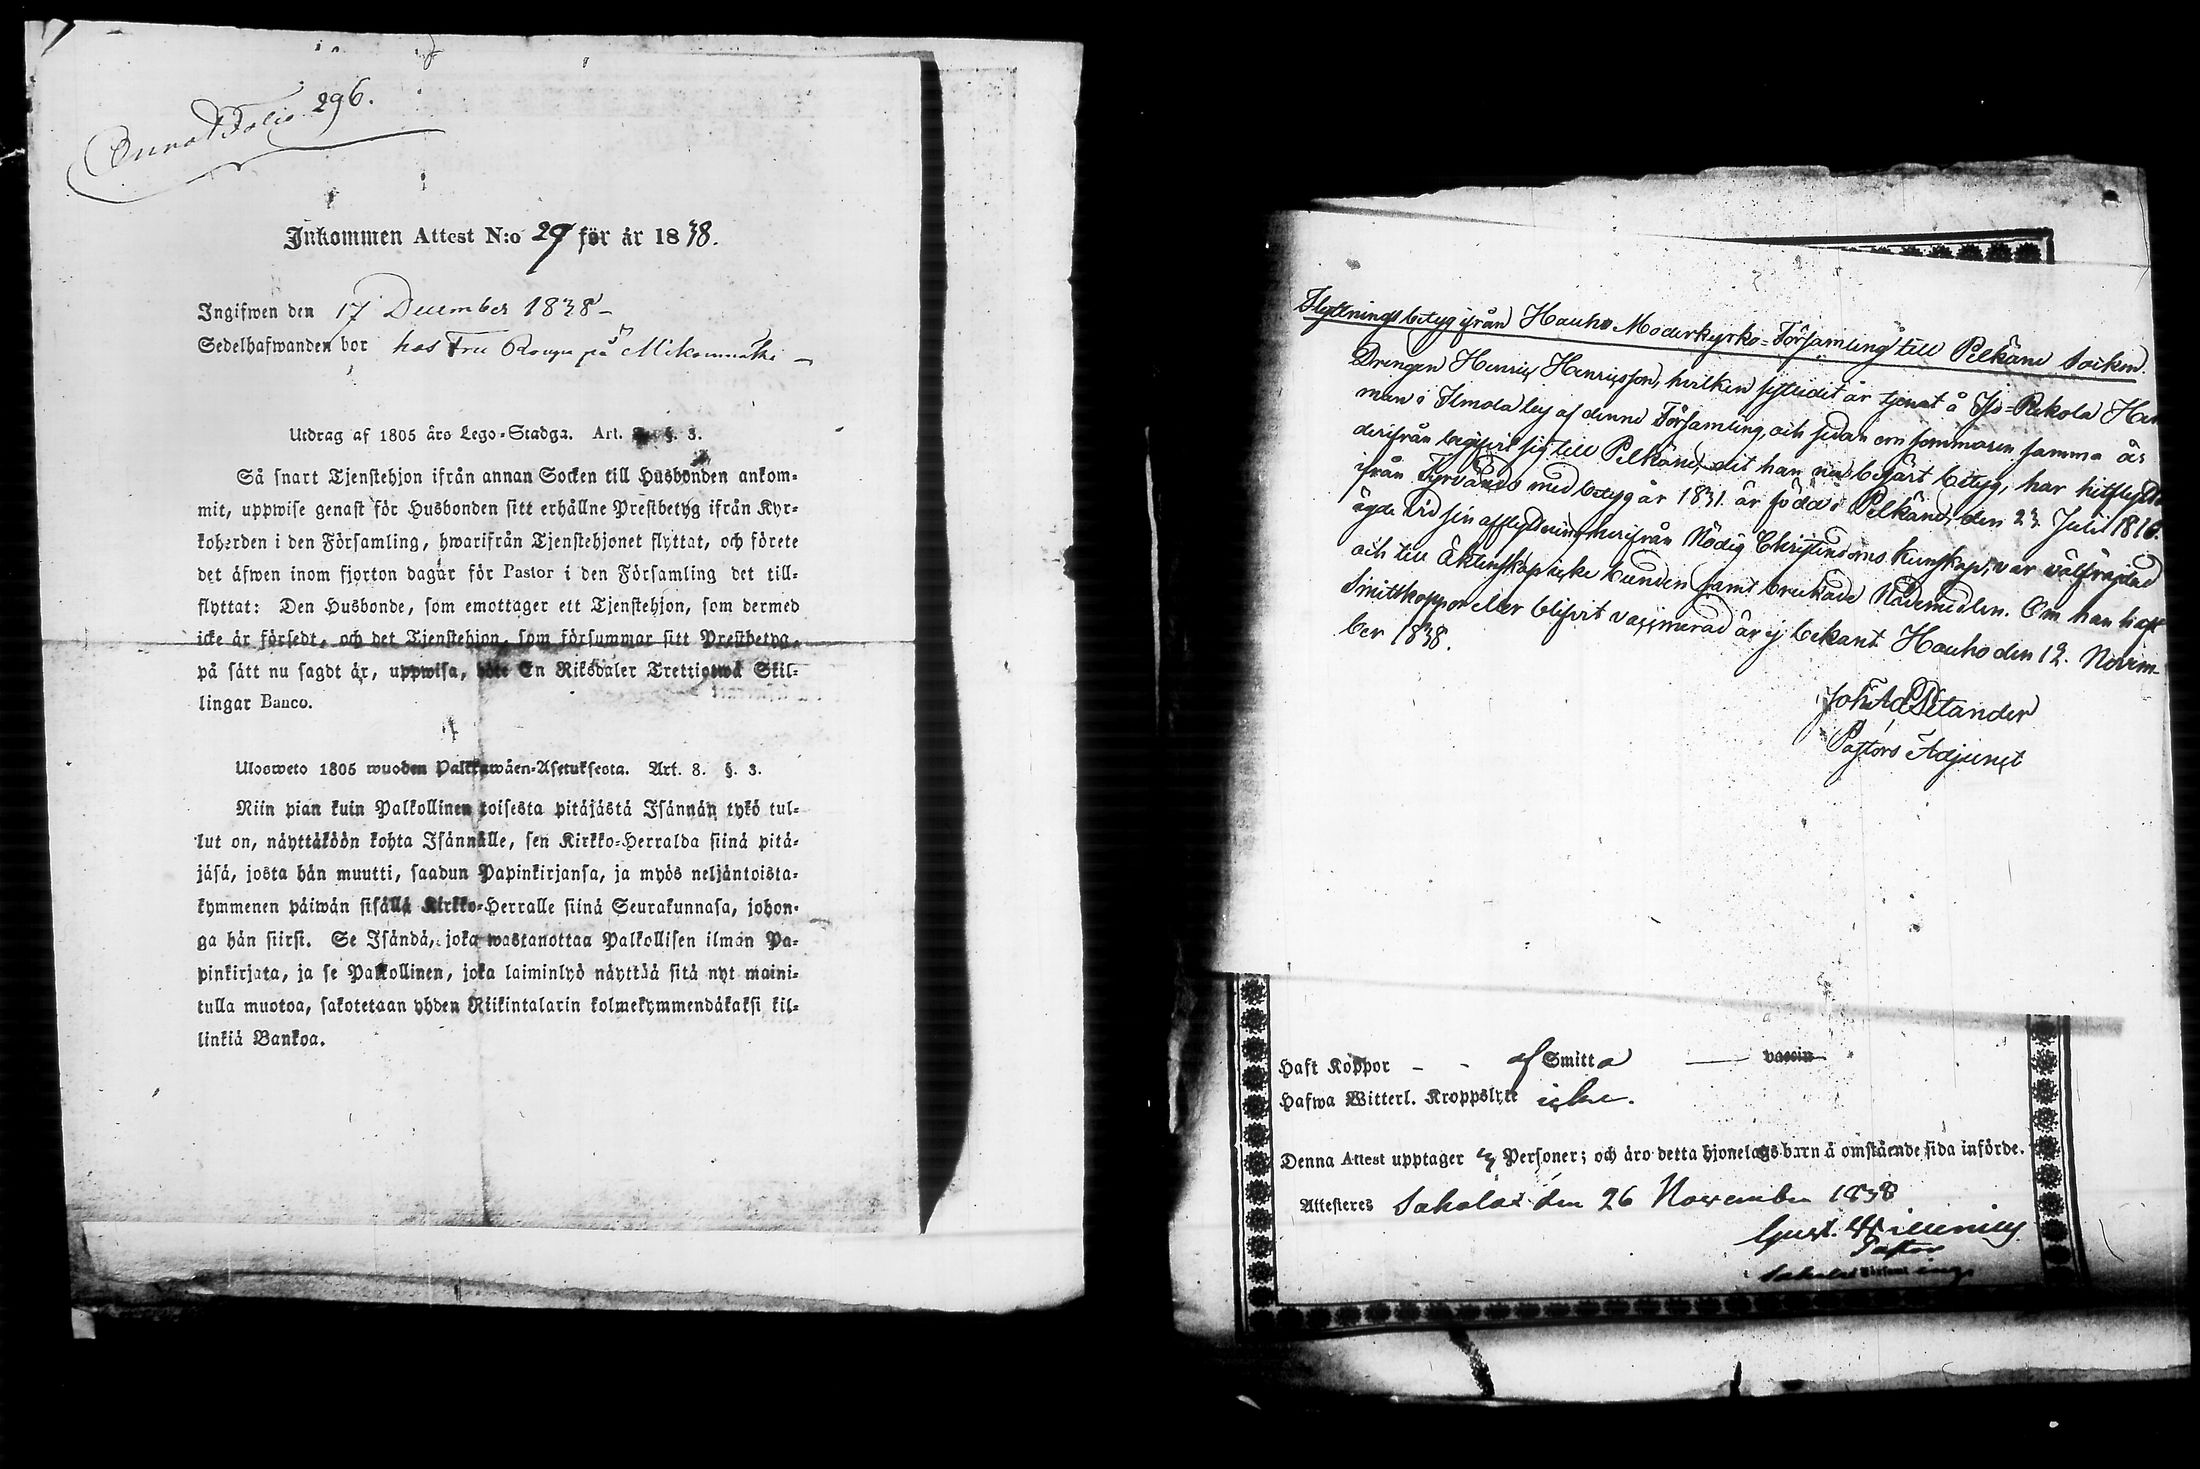 Annot. Folio 296.
Inkommen Attest N:o 29 för år 1838.
Ingifwen den 17 December 1838 –
Sedelhafwanden bor hos Fru på –
Utdrag af 1805 års Lego-Stadga. Art. §. 3.
Så snart Tjenstehjon ifrån annan Socken till Husbonden ankom-
mit, uppwise genast för Husbonden sitt erhållne Prestbetyg ifrån Kyr-
koherden i den Församling, hwarifrån Tjenstehjonet flyttat, och förete
det äfwen inom fjorton dagar för Pastor i den Församling det till-
flyttat: Den Husbonde, som emottager ett Tjenstehjon, som dermed
icke är försedt, och det Tjenstehjon, som försummar sitt Prestbetyg,
på sätt nu sagdt är, uppwisa, böte En Riksdaler Trettiotwå Skil-
lingar Banco.
Ulosweto 1805 wuoden Palkkawäen-Asetuksesta. Art. 8. §. 3.
Niin pian kuin Palkollinen toisesta pitäjästä Isännän tykö tul-
lut on, näyttäköön kohta Isännälle, sen Kirkko-Herralda siinä pitä-
jäsä, josta hän muutti, saadun Papinkirjansa, ja myös neljäntoista-
kymmenen päiwän sisällä Kirkko-Herralle siinä Seurakunnasa, johon-
ga hän siirsi. Se Isändä, joka wastanottaa Palkollisen ilman Pa-
pinkirjata, ja se Palkollinen, joka laiminlyö näyttää sitä nyt maini-
tulla muotoa, sakotetaan yhden Riikintalarin kolmekymmendäkaksi kil-
linkiä Bankoa.
Flyttnings betyg ifrån Hauho Moderkyrko-Församling till Pelkäne Socken.
Drengen Henric Henricsson, hvilken sistledit år tjenat å Iso-Pekola Hem
man i Ilmola by af denne Församling, och sedan om sommaren samma år
derifrån begifvit sig till Pelkäne, dit han nu begärt betyg, har hitflyttat
ifrån Tyrvändö med betyg år 1831. är född i Pelkäne den 23. Juli 1816.
ägde vid sin afflyttning härifrån Nödig Christendoms kunskap, var välfräjdad
och till Äktenskap icke bunden samt brukade Nådemedlen. Om han haft
Smittkoppor eller blifvit vaccinerad är ej bekant. Hauho den 12. Novem-
ber 1838.
Joh. Ad. Petander
Pastors Adjunct
Haft Koppor – – af Smitta — vaccin
Hafwa Witterl. Kroppslyte icke.
Denna Attest upptager Personer; och äro detta hjonelags barn å omstående sida införde.
Attesteres Sahalax den 26 November 1838
Gust.
Pastor
Sahalax Församling